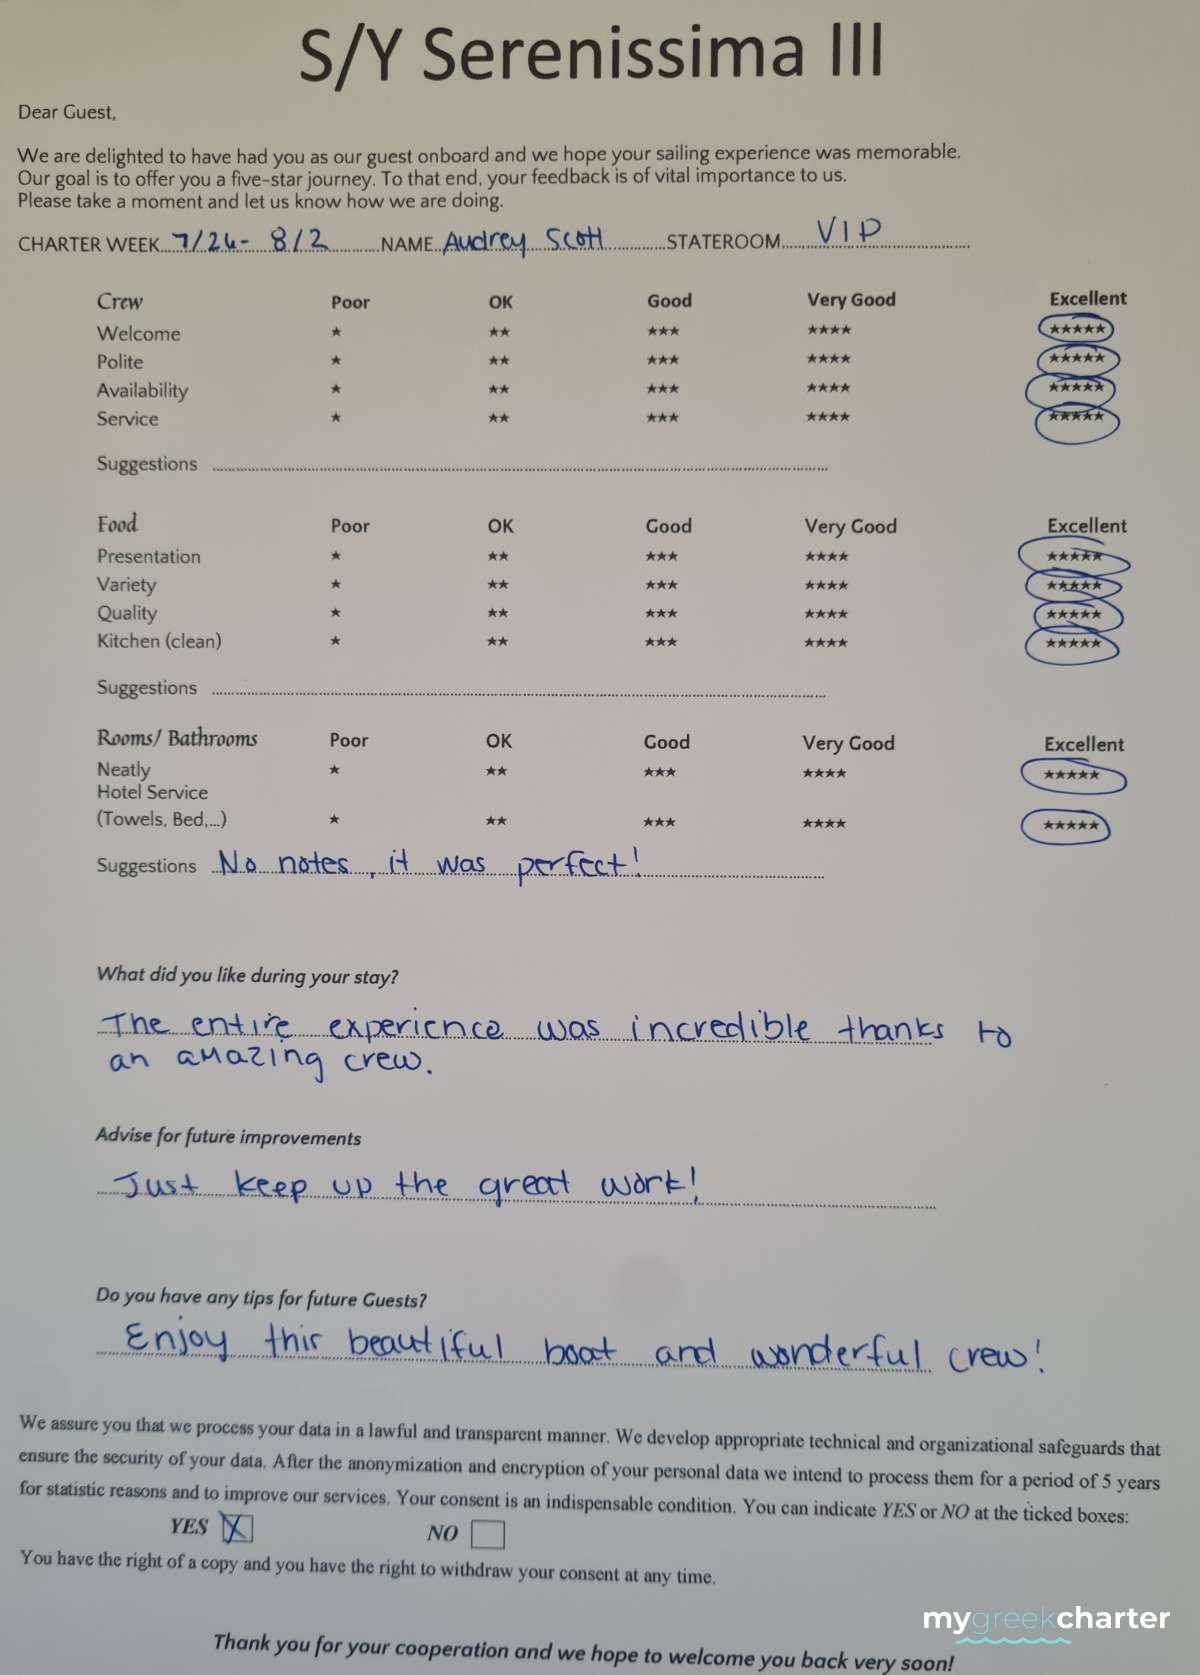 S/Y Serenissima III
Dear Guest,
We are delighted to have had you as our guest onboard and we hope your sailing experience was memorable.
Our goal is to offer you a five-star journey. To that end, your feedback is of vital importance to us.
Please take a moment and let us know how we are doing.
CHARTER WEEK 7/26- 8/2 NAME Audrey Scott STATEROOM VIP
Crew Poor OK Good Very Good Excellent
Welcome ★ ★★ ★★★ ★★★★ ★★★★★
Polite ★ ★★ ★★★ ★★★★ ★★★★★
Availability ★ ★★ ★★★ ★★★★ ★★★★★
Service ★ ★★ ★★★ ★★★★ ★★★★★
Suggestions
Food Poor OK Good Very Good Excellent
Presentation ★ ★★ ★★★ ★★★★ ★★★★★
Variety ★ ★★ ★★★ ★★★★ ★★★★★
Quality ★ ★★ ★★★ ★★★★ ★★★★★
Kitchen (clean) ★ ★★ ★★★ ★★★★ ★★★★★
Suggestions
Rooms/ Bathrooms Poor OK Good Very Good Excellent
Neatly ★ ★★ ★★★ ★★★★ ★★★★★
Hotel Service
(Towels, Bed,...) ★ ★★ ★★★ ★★★★ ★★★★★
Suggestions No notes, it was perfect!
What did you like during your stay?
The entire experience was incredible thanks to
an amazing crew.
Advise for future improvements
Just keep up the great work!
Do you have any tips for future Guests?
Enjoy this beautiful boat and wonderful crew!
We assure you that we process your data in a lawful and transparent manner. We develop appropriate technical and organizational safeguards that
ensure the security of your data. After the anonymization and encryption of your personal data we intend to process them for a period of 5 years
for statistic reasons and to improve our services. Your consent is an indispensable condition. You can indicate YES or NO at the ticked boxes:
YES X NO
You have the right of a copy and you have the right to withdraw your consent at any time.
mygreekcharter
Thank you for your cooperation and we hope to welcome you back very soon!